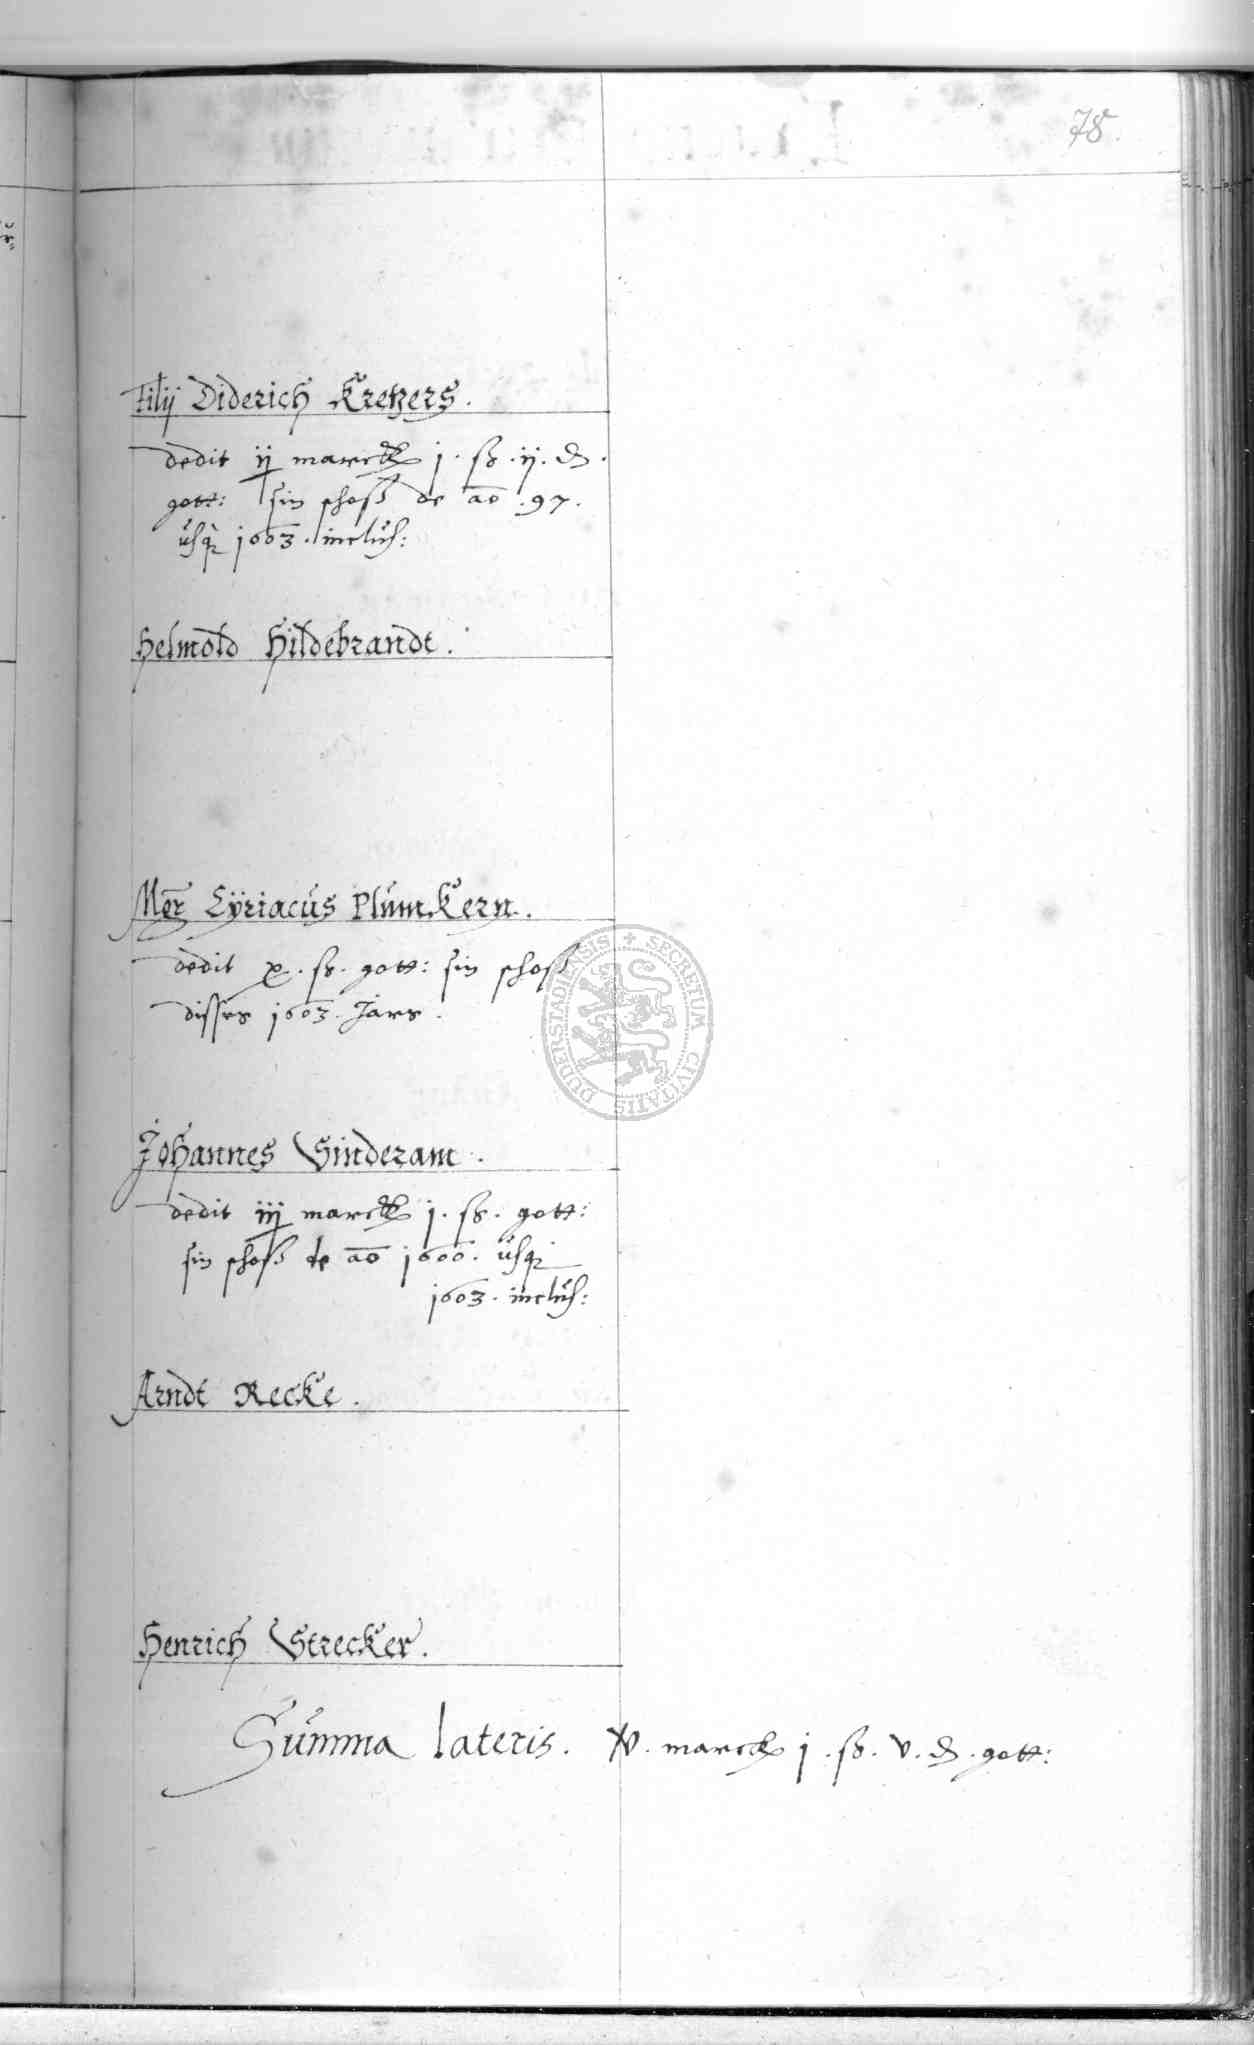 78.
Filij Diderich Kretzers.
dedit ij marck j. ß. ij. ₰.
gott: sin schoß de ao .97.
usq 1603. inclus:
Helmold Hildebrandt.
Mgr Cÿriacus Plumckern.
dedit x. ß. gott: sin schoß
disses 1603. Jars.
Johannes Sinderam.
dedit iij marck j. ß. gott:
sin schoß de ao 1600. usq
1603. inclus:
Arndt Recke.
Henrich Strecker.
Summa lateris. xv. marck j. ß. v. ₰. gott:
SECRETUM CIVITATIS DUDERSTADIENSIS